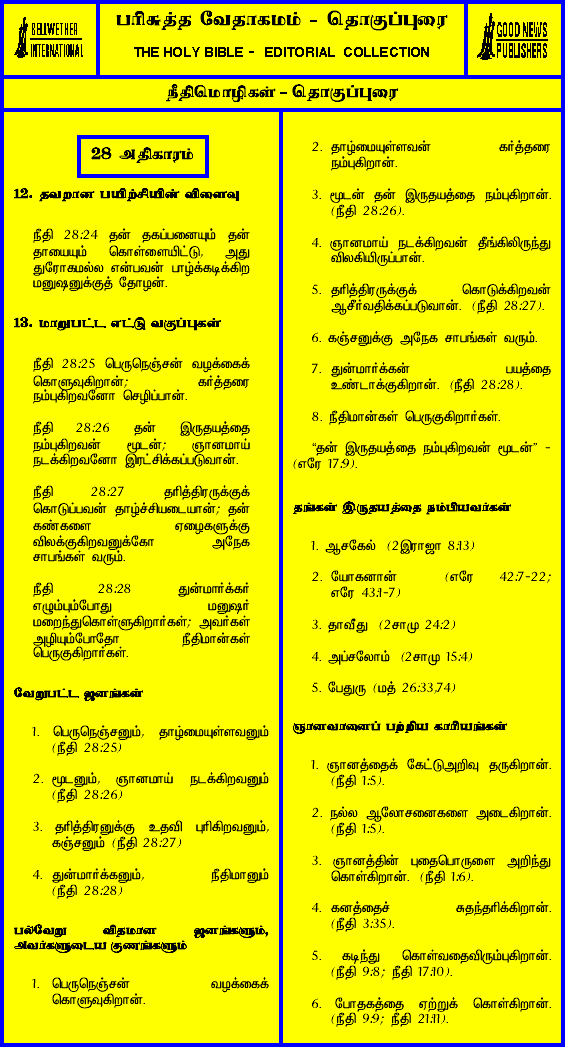 BELLWETHER
INTERNATIONAL
பரிசுத்த வேதாகமம் - தொகுப்புரை
THE HOLY BIBLE - EDITORIAL COLLECTION
GOOD NEWS
PUBLISHERS
நீதிமொழிகள் - தொகுப்புரை
28 அதிகாரம்
12. தவறான பயிற்சியின் விளைவு
நீதி 28:24 தன் தகப்பனையும் தன்
தாயையும் கொள்ளையிட்டு, அது
துரோகமல்ல என்பவன் பாழ்க்கடிக்கிற
மனுஷனுக்குத் தோழன்.
13. மாறுபட்ட எட்டு வகுப்புகள்
நீதி 28:25 பெருநெஞ்சன் வழக்கைக்
கொளுவுகிறான்; கர்த்தரை
நம்புகிறவனோ செழிப்பான்.
நீதி 28:26 தன் இருதயத்தை
நம்புகிறவன் மூடன்; ஞானமாய்
நடக்கிறவனோ இரட்சிக்கப்படுவான்.
நீதி 28:27 தரித்திரருக்குக்
கொடுப்பவன் தாழ்ச்சியடையான்; தன்
கண்களை ஏழைகளுக்கு
விலக்குகிறவனுக்கோ அநேக
சாபங்கள் வரும்.
நீதி 28:28 துன்மார்க்கர்
எழும்பும்போது மனுஷர்
மறைந்துகொள்ளுகிறார்கள்; அவர்கள்
அழியும்போதோ நீதிமான்கள்
பெருகுகிறார்கள்.
வேறுபட்ட ஜனங்கள்
1. பெருநெஞ்சனும், தாழ்மையுள்ளவனும்
(நீதி 28:25)
2. மூடனும், ஞானமாய் நடக்கிறவனும்
(நீதி 28:26)
3. தரித்திரனுக்கு உதவி புரிகிறவனும்,
கஞ்சனும் (நீதி 28:27)
4. துன்மார்க்கனும், நீதிமானும்
(நீதி 28:28)
பல்வேறு விதமான ஜனங்களும்,
அவர்களுடைய குணங்களும்
1. பெருநெஞ்சன் வழக்கைக்
கொளுவுகிறான்.
2. தாழ்மையுள்ளவன் கர்த்தரை
நம்புகிறான்.
3. மூடன் தன் இருதயத்தை நம்புகிறான்.
(நீதி 28:26).
4. ஞானமாய் நடக்கிறவன் தீங்கிலிருந்து
விலகியிருப்பான்.
5. தரித்திரருக்குக் கொடுக்கிறவன்
ஆசீர்வதிக்கப்படுவான். (நீதி 28:27).
6. கஞ்சனுக்கு அநேக சாபங்கள் வரும்.
7. துன்மார்க்கன் பயத்தை
உண்டாக்குகிறான். (நீதி 28:28).
8. நீதிமான்கள் பெருகுகிறார்கள்.
“தன் இருதயத்தை நம்புகிறவன் மூடன்” -
(எரே 17:9).
தங்கள் இருதயத்தை நம்பியவர்கள்
1. ஆசகேல் (2இராஜா 8:13)
2. யோகனான் (எரே 42:7-22;
எரே 43:1-7)
3. தாவீது (2சாமு 24:2)
4. அப்சலோம் (2சாமு 15:4)
5. பேதுரு (மத் 26:33,74)
ஞானவானைப் பற்றிய காரியங்கள்
1. ஞானத்தைக் கேட்டுஅறிவு தருகிறான்.
(நீதி 1:5).
2. நல்ல ஆலோசனைகளை அடைகிறான்.
(நீதி 1:5).
3. ஞானத்தின் புதைபொருளை அறிந்து
கொள்கிறான். (நீதி 1:6).
4. கனத்தைச் சுதந்தரிக்கிறான்.
(நீதி 3:35).
5. கடிந்து கொள்வதைவிரும்புகிறான்.
(நீதி 9:8; நீதி 17:10).
6. போதகத்தை ஏற்றுக் கொள்கிறான்.
(நீதி 9:9; நீதி 21:11).